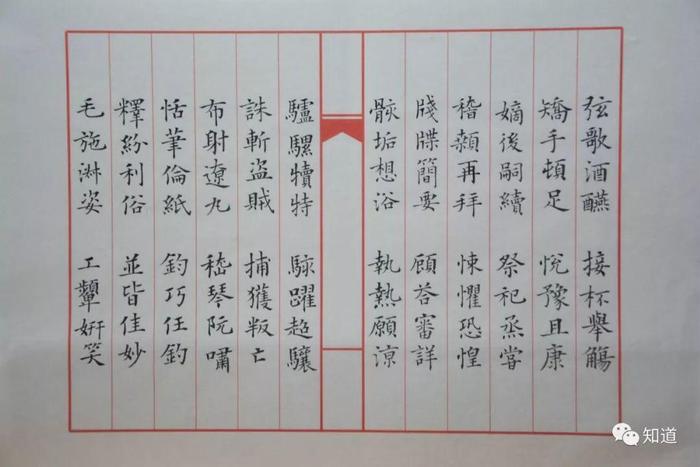 弦歌酒醼 接杯舉觴
矯手頓足 悅豫且康
嫡後嗣續 祭祀烝甞
稽顙再拜 悚懼恐惶
牋牒簡要 顧荅審詳
骸垢想浴 執熱願涼
驢騾犢特 駭躍超驤
誅斬盜賊 捕獲叛亡
布射遼丸 嵇琴阮嘯
恬筆倫紙 鈞巧任釣
釋紛利俗 並皆佳妙
毛施淑姿 工顰妍笑
知道